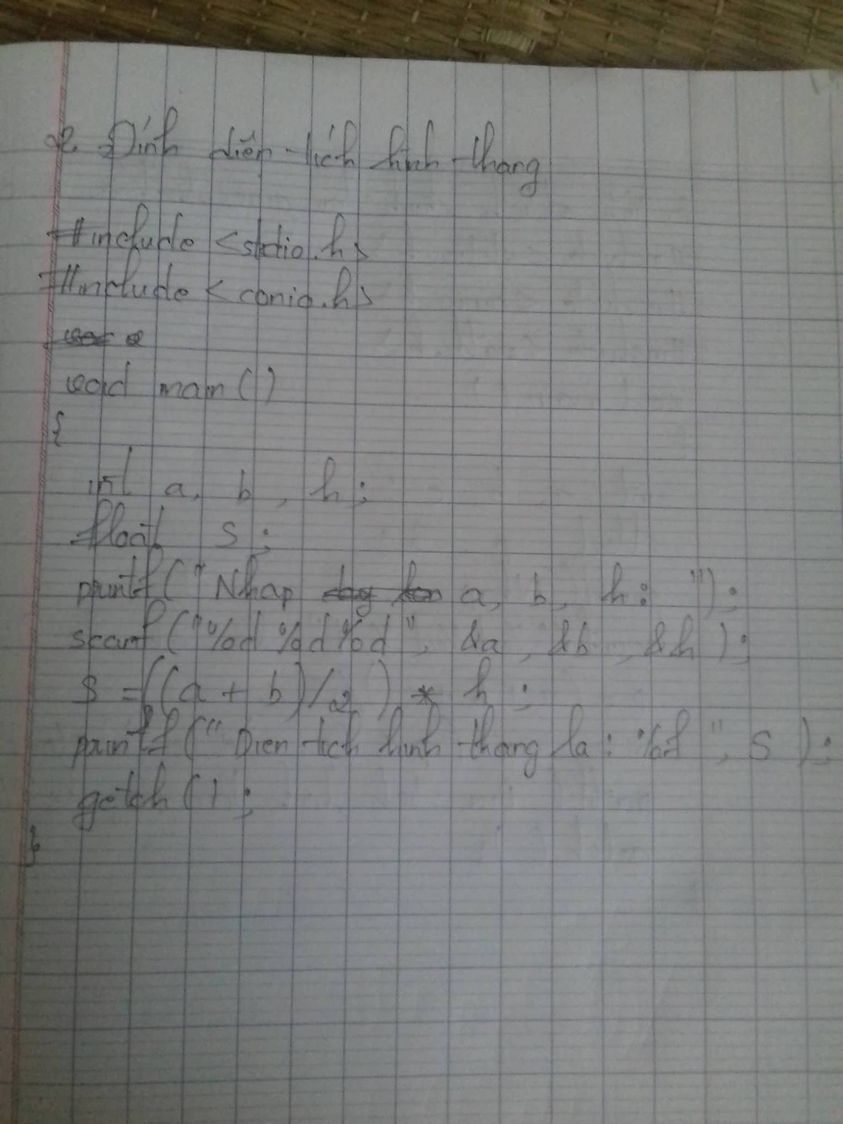 2. Tính diện tích hình thang
#include <stdio.h>
#include <conio.h>
void main()
{
int a, b, h;
float S;
printf("Nhap a, b, h: ");
scanf("%d %d %d", &a, &b, &h);
S = ((a + b)/2) * h;
printf("Dien tich hinh thang la: %f", S);
getch();
}